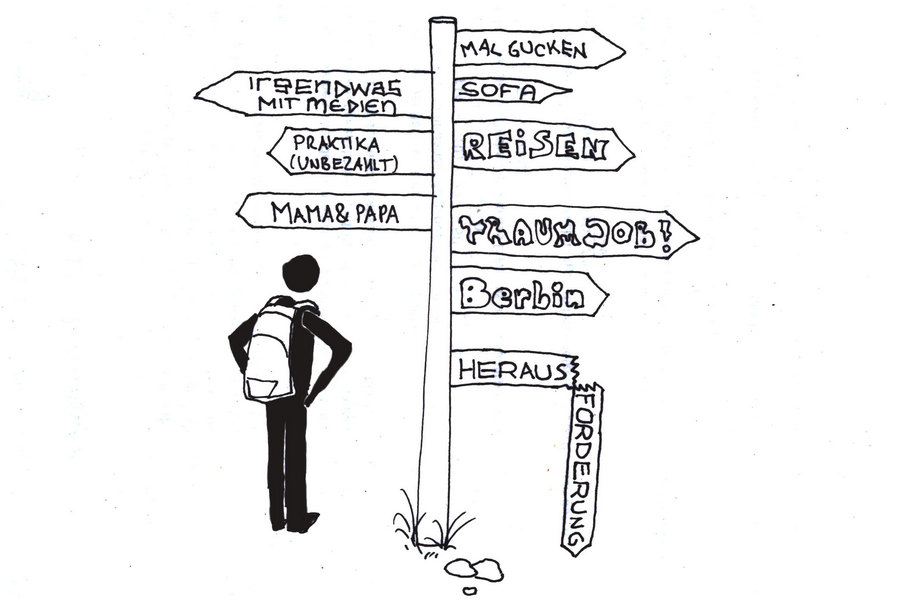 MAL GUCKEN
IRGENDWAS
MIT MEDIEN
SOFA
PRAKTIKA
(UNBEZAHLT)
REiSEN
MAMA & PAPA
TRAUMJOB!
Berlin
HERAUS
FORDERUNG